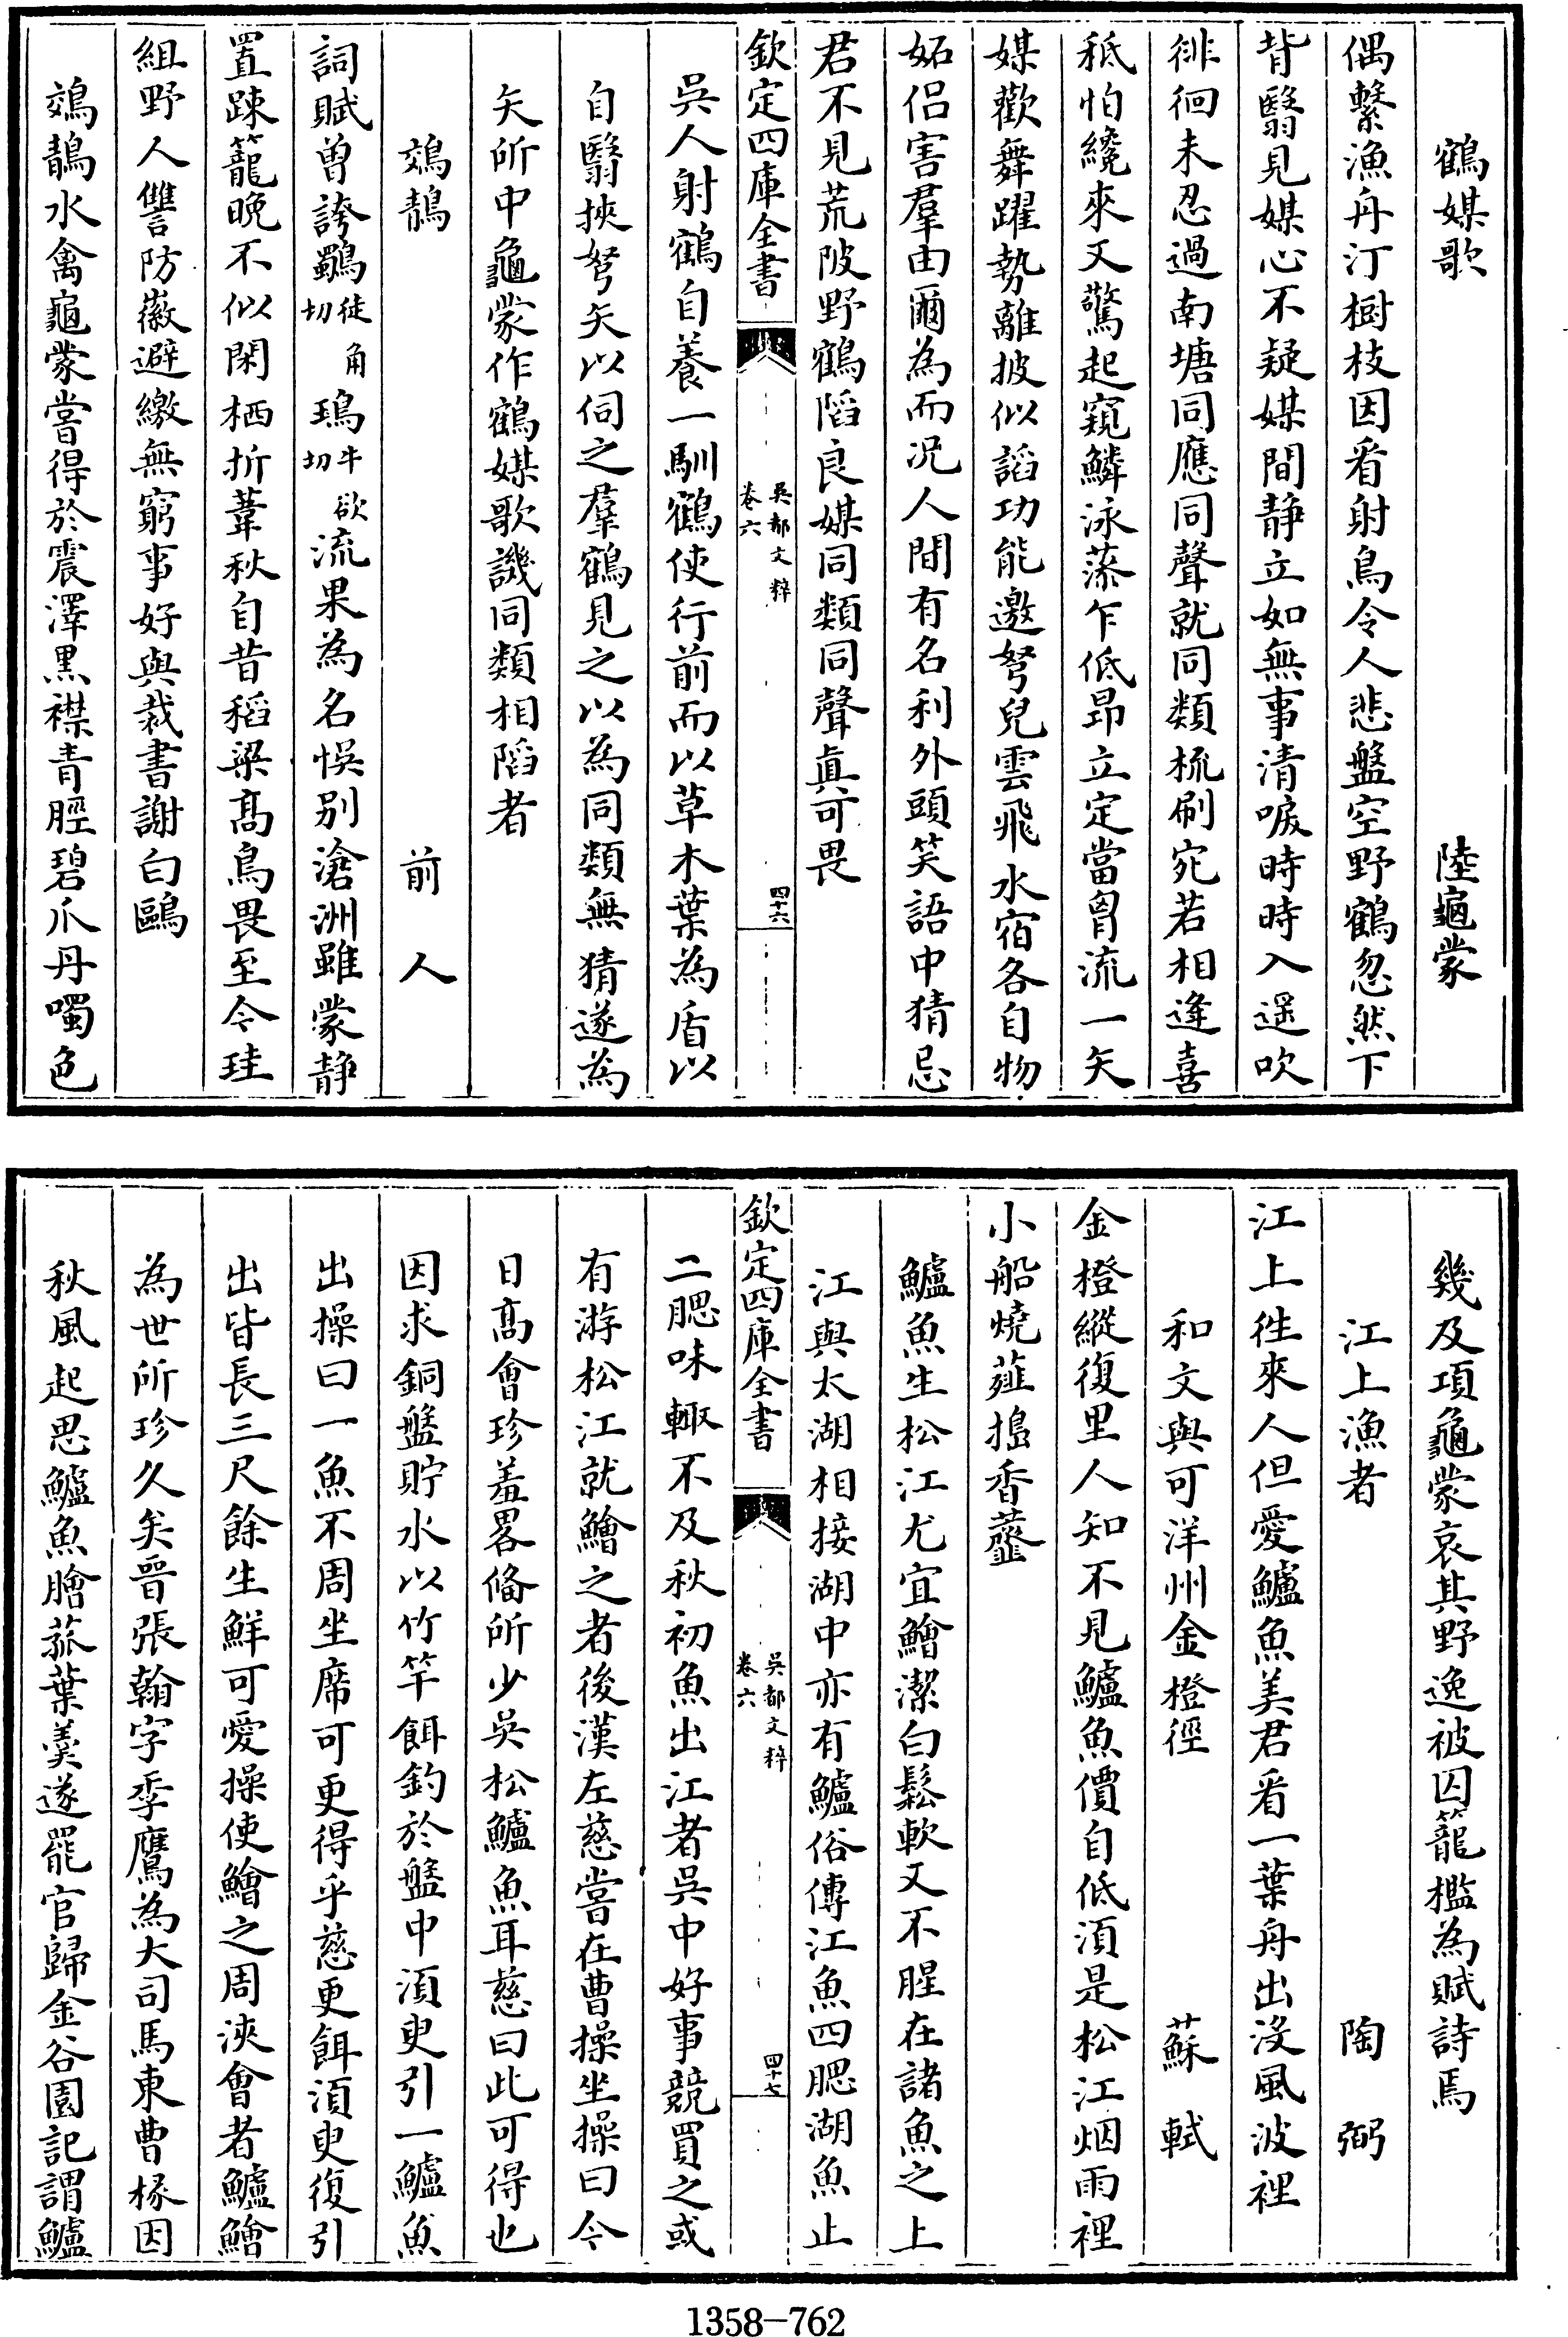 鶴媒歌　陸龜蒙
偶繫漁舟汀樹枝因看射鳥令人悲盤空野鶴忽然下
背翳見媒心不疑媒間静立如無事清唳時時入遥吹
徘徊未忍過南塘同應同聲就同類梳刷宛若相逢喜
秪怕纔來又驚起窺鱗泳藻乍低昂立定當胷流一矢
媒歡舞躍勢離披似謟功能邀弩兒雲飛水宿各自物
妬侣害羣由爾為而况人間有名利外頭笑語中猜忌
君不見荒陂野鶴䧟良媒同類同聲眞可畏
欽定四庫全書　吳都文粹卷六　四十六
吳人射鶴自養一馴鶴使行前而以草木葉為盾以
自翳挾弩矢以伺之羣鶴見之以為同類無猜遂為
矢所中龜蒙作鶴媒歌譏同類相䧟者
鵁鶄　前人
詞賦曾誇鸀徒角切鳿牛欲切流果為名悞别滄洲雖蒙静
置踈籠晚不似閑栖折葦秋自昔稻粱髙鳥畏至今珪
組野人讐防㣲避繳無窮事好與裁書謝白鷗
鵁鶄水禽龜蒙嘗得於震澤黒襟青脛碧爪丹噣色
幾及項龜蒙哀其野逸被囚籠檻為賦詩焉
江上漁者　陶弼
江上徃來人但愛鱸魚美君看一葉舟出沒風波裡
和文與可洋州金橙徑　蘇軾
金橙縱復里人知不見鱸魚價自低須是松江烟雨裡
小船燒薤搗香虀
鱸魚生松江尤宜鱠潔白鬆軟又不腥在諸魚之上
江與太湖相接湖中亦有鱸俗傳江魚四腮湖魚止
欽定四庫全書　吳都文粹卷六　四十七
二腮味輙不及秋初魚出江者吳中好事競買之或
有游松江就鱠之者後漢左慈嘗在曹操坐操曰今
日髙會珍羞畧備所少吳松鱸魚耳慈曰此可得也
因求銅盤貯水以竹竿餌釣於盤中須臾引一鱸魚
出操曰一魚不周坐席可更得乎慈更餌須臾復引
出皆長三尺餘生鮮可愛操使鱠之周浹會者鱸鱠
為世所珍久矣晉張翰字季鷹為大司馬東曹掾因
秋風起思鱸魚膾菰葉羮遂罷官歸金谷園記謂鱸
1358-762